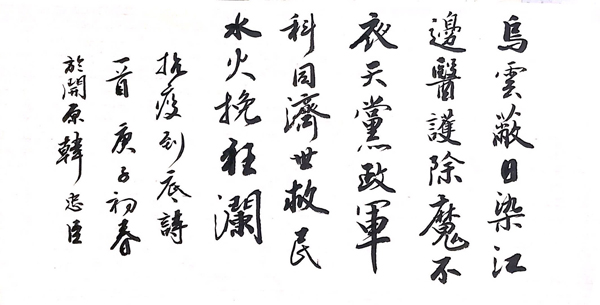 烏雲蔽日染江
邊醫護除魔不
夜天黨政軍
科同濟世救民
水火挽狂瀾
抗疫到底詩
一首 庚子初春
於開原韓忠臣